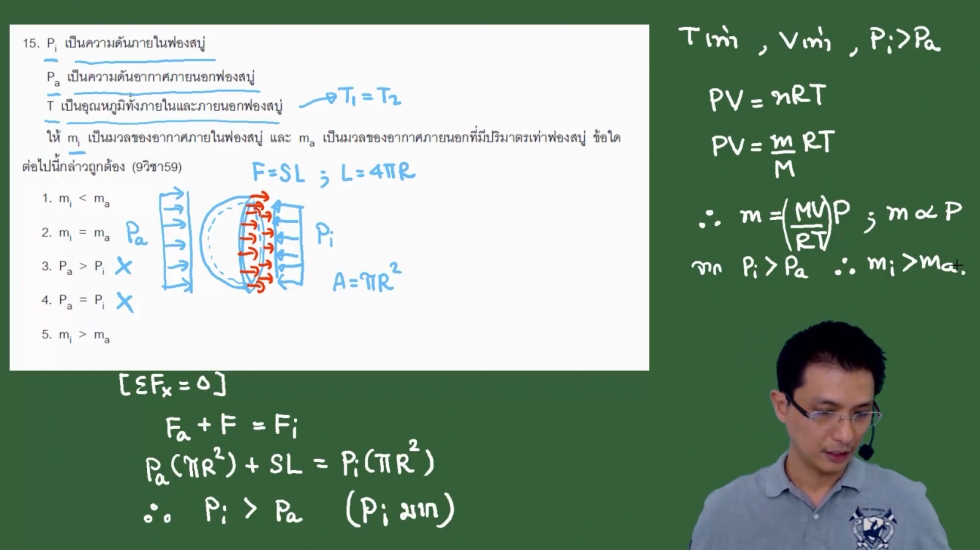 15. Pᵢ เป็นความดันภายในฟองสบู่
Pₐ เป็นความดันอากาศภายนอกฟองสบู่
T เป็นอุณหภูมิทั้งภายในและภายนอกฟองสบู่ → T₁ = T₂
ให้ mᵢ เป็นมวลของอากาศภายในฟองสบู่ และ mₐ เป็นมวลของอากาศภายนอกที่มีปริมาตรเท่าฟองสบู่ ข้อใด
ต่อไปนี้กล่าวถูกต้อง (9วิชา59)
F = SL ; L = 4πR
1. mᵢ < mₐ
2. mᵢ = mₐ
3. Pₐ > Pᵢ X
4. Pₐ = Pᵢ X
5. mᵢ > mₐ
Pₐ
Pᵢ
A = πR²
[ΣFₓ = 0]
Fₐ + F = Fᵢ
Pₐ(πR²) + SL = Pᵢ(πR²)
∴ Pᵢ > Pₐ (Pᵢ มาก)
T เท่า , V เท่า , Pᵢ > Pₐ
PV = nRT
PV = m/M RT
∴ m = (MV/RT)P ; m ∝ P
จาก Pᵢ > Pₐ ∴ mᵢ > mₐ.